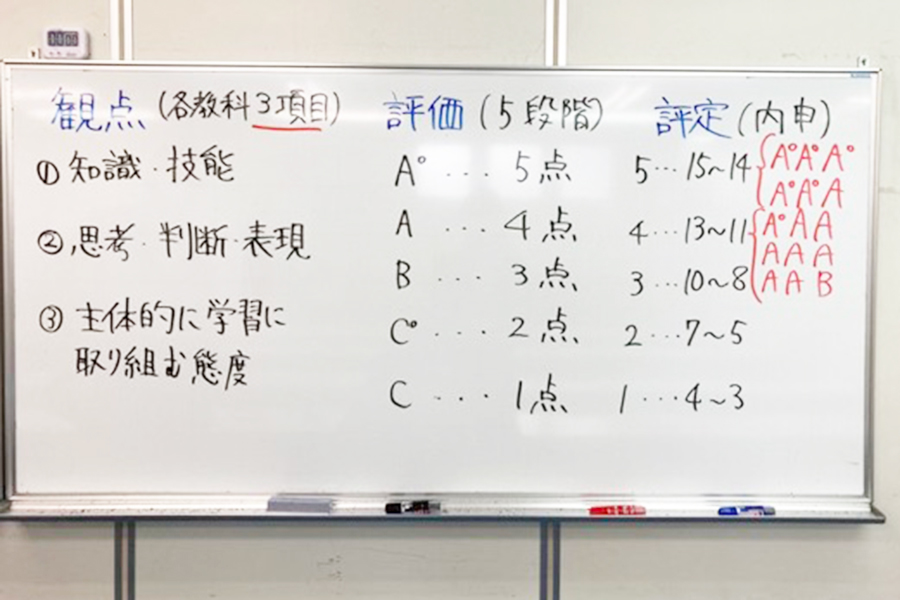 観点 (各教科3項目)
① 知識・技能
② 思考・判断・表現
③ 主体的に学習に
取り組む態度
評価 (5段階)
A° ... 5点
A ... 4点
B ... 3点
C° ... 2点
C ... 1点
評定 (内申)
5...15~14
4...13~11
3...10~8
2...7~5
1...4~3
A°A°A°
A°A°A
A°AA
AAA
AAB